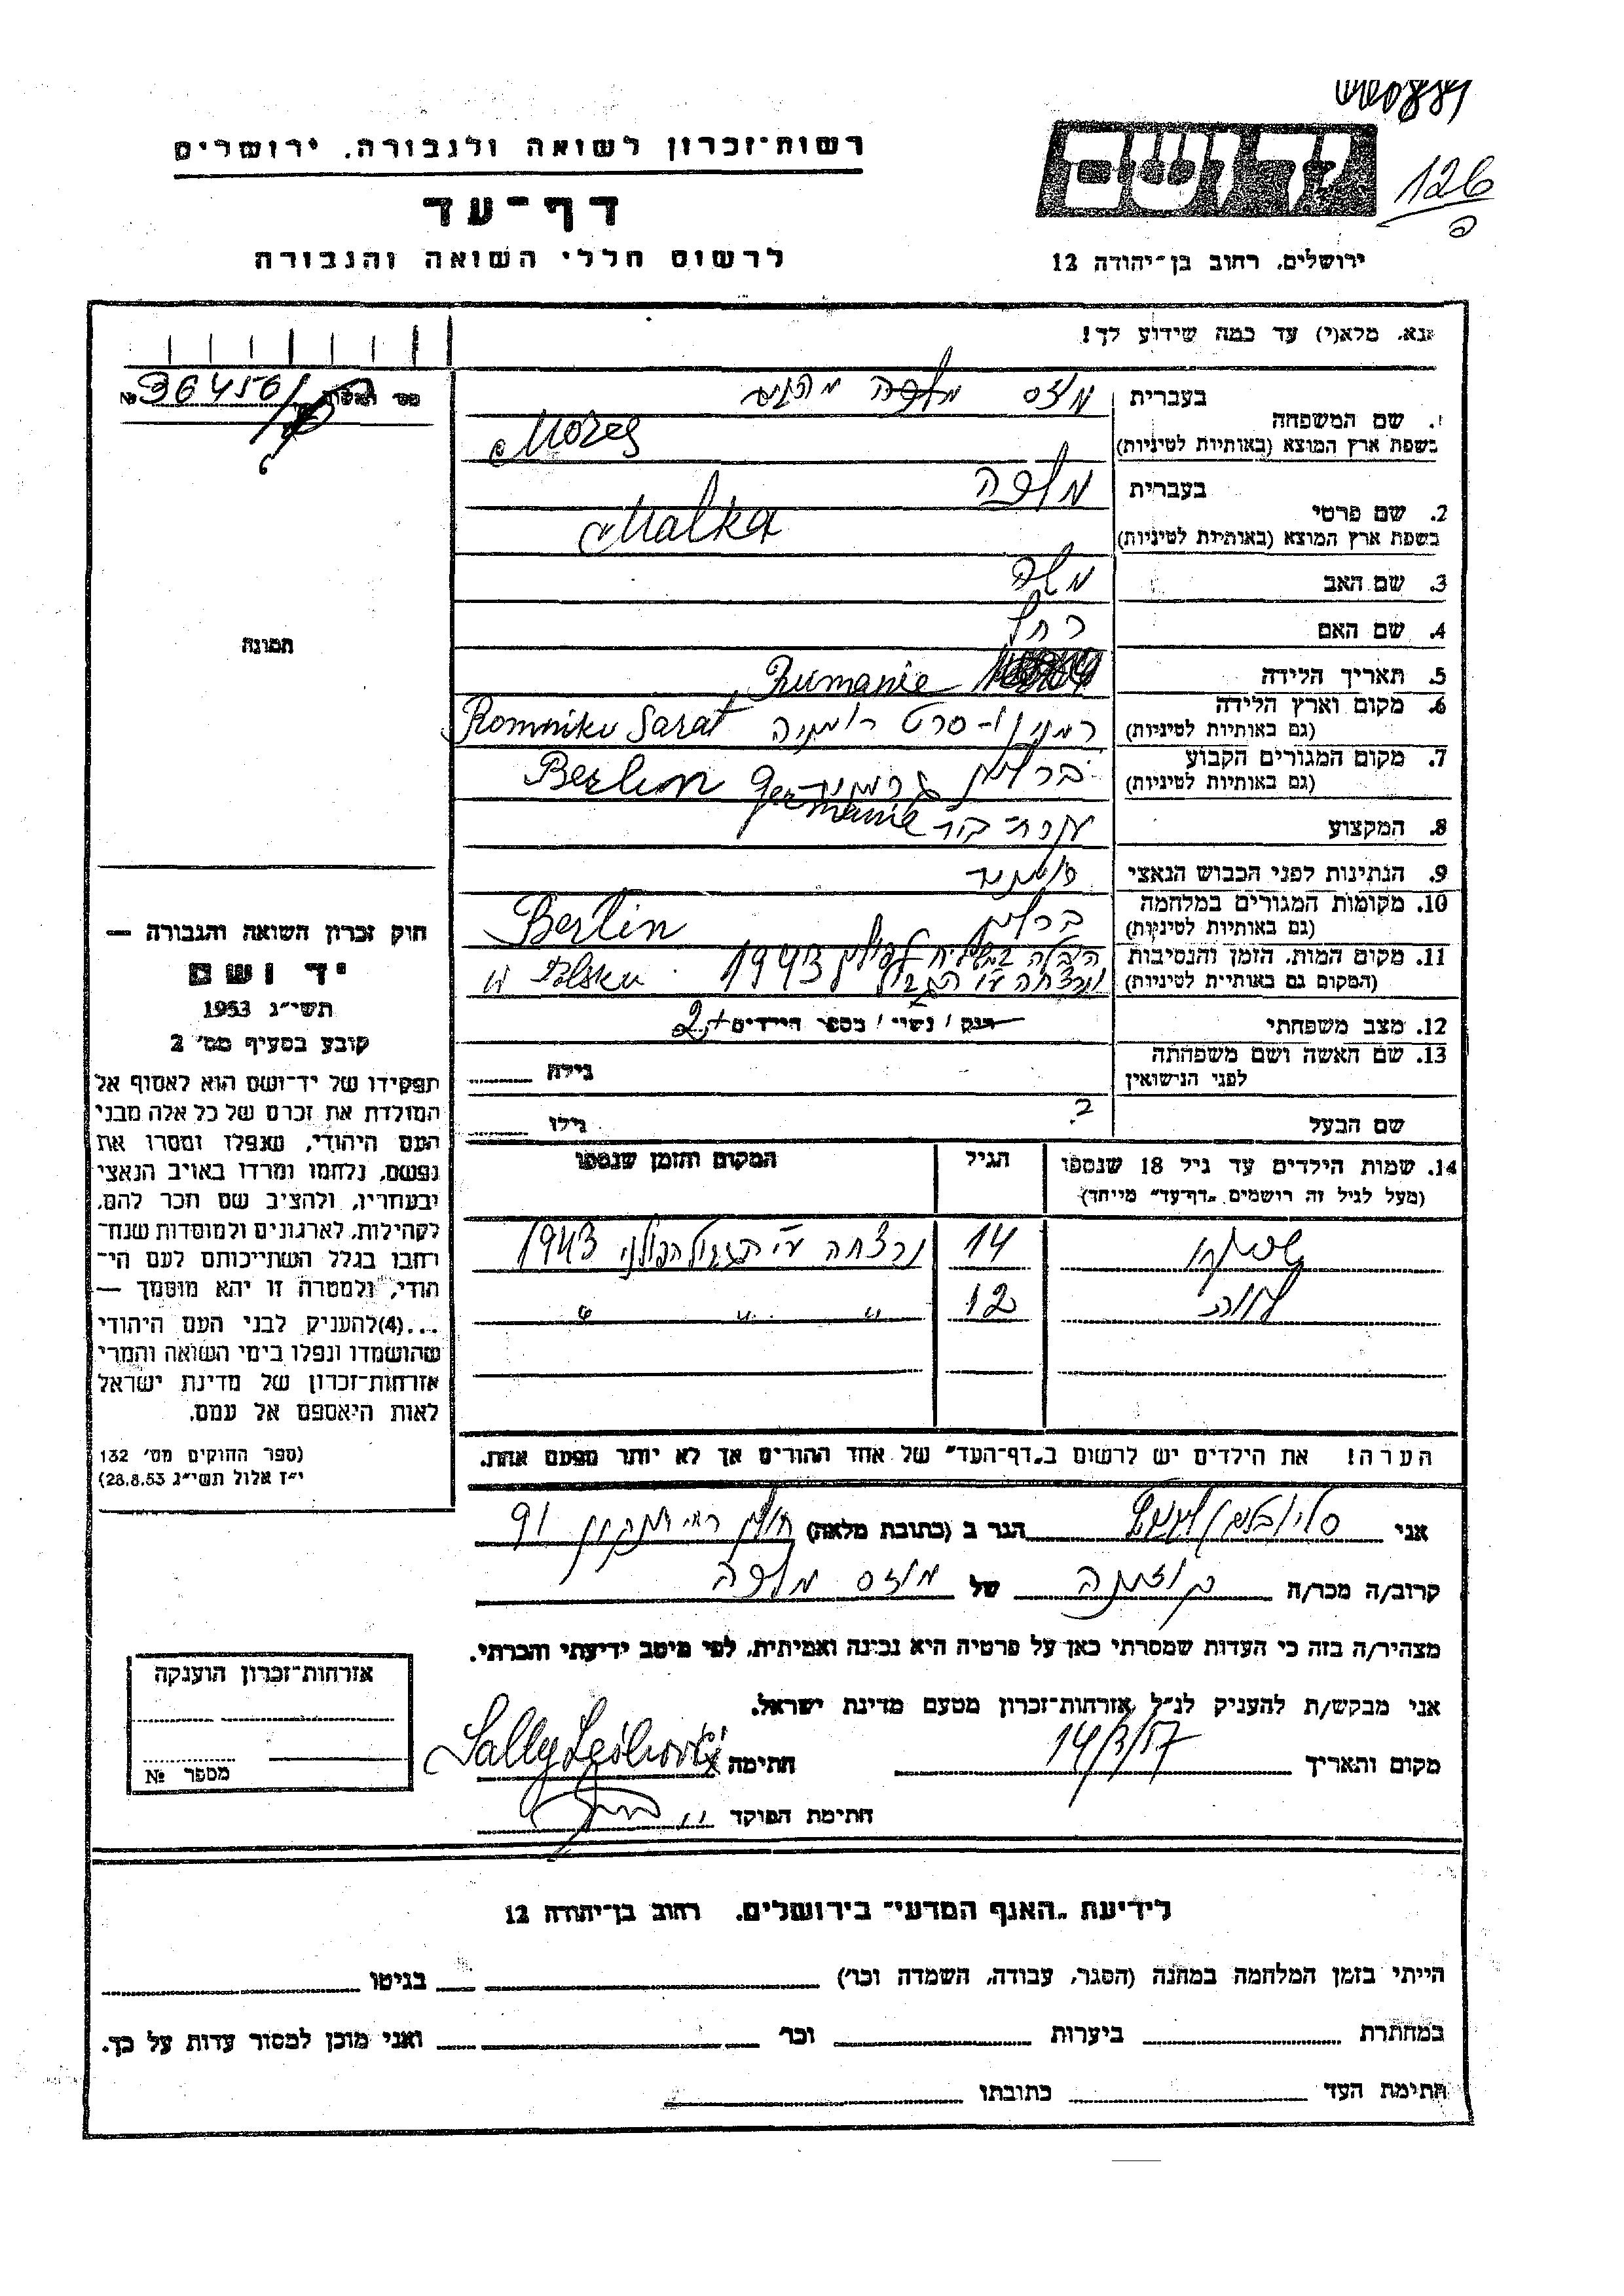 126
רשות־זכרון לשואה ולגבורה, ירושלים
דף־עד
לרשום חללי השואה והגבורה
ירושלים, רחוב בן־יהודה 12
נא, מלא(י) עד כמה שידוע לך!
№ 36456
בעברית מוזס מלכה
1. שם המשפחה
בשפת ארץ המוצא (באותיות לטיניות) Mozes
בעברית מלכה
2. שם פרטי
בשפת ארץ המוצא (באותיות לטיניות) Malka
3. שם האב משה
4. שם האם רחל
5. תאריך הלידה Rumanie
6. מקום וארץ הלידה רמניקו-סרט רומניה Romniku Sarat,
(גם באותיות לטיניות)
7. מקום המגורים הקבוע ברלין גרמניה Berlin Germanie
(גם באותיות לטיניות)
8. המקצוע עקרת־בית
9. הנתינות לפני הכבוש הנאצי
10. מקומות המגורים במלחמה ברלין Berlin
(גם באותיות לטיניות)
11. מקום המות, הזמן והנסיבות 1943
(המקום גם באותיות לטיניות) ונרצחה ע"י הגבול W Polsku
12. מצב משפחתי רווק / נשוי / מספר הילדים 2
13. שם האשה ושם משפחתה גילה
לפני הנישואין
שם הבעל ? גילו
14. שמות הילדים עד גיל 18 שנספו הגיל המקום והזמן שנספו
(מעל לגיל זה רושמים „דף־עד” מיוחד)
14 נרצחה ע"י הגבול הפולני 1943
12 " " "
הערה! את הילדים יש לרשום ב„דף־העד” של אחד ההורים אך לא יותר מפעם אחת.
אני הגר ב (כתובת מלאה) חולון 91
קרוב/ה מכר/ה של מוזס מלכה
מצהיר/ה בזה כי העדות שמסרתי כאן על פרטיה היא נכונה ואמיתית, לפי מיטב ידיעתי והכרתי.
אני מבקש/ת להעניק לנ״ל אזרחות־זכרון מטעם מדינת ישראל.
מקום ותאריך 14/3/57 חתימה Sally
חתימת הפוקד
תמונה
חוק זכרון השואה והגבורה —
יד ושם
תשי״ג 1953
קובע בסעיף מס׳ 2
תפקידו של יד־ושם הוא לאסוף אל
המולדת את זכרם של כל אלה מבני
העם היהודי, שנפלו ומסרו את
נפשם, נלחמו ומרדו באויב הנאצי
ובעוזריו, ולהציב שם וזכר להם,
לקהילות, לארגונים ולמוסדות שנח־
רבו בגלל השתייכותם לעם הי־
הודי, ולמטרה זו יהא מוסמך —
...(4) להעניק לבני העם היהודי
שהושמדו ונפלו בימי השואה והמרי
אזרחות־זכרון של מדינת ישראל
לאות היאספם אל עמם.
(ספר החוקים מס׳ 132
י״ז אלול תשי״ג 28.8.53)
אזרחות־זכרון הוענקה
מספר №
לידיעת „האגף המדעי” בירושלים, רחוב בן־יהודה 12
הייתי בזמן המלחמה במחנה (הסגר, עבודה, השמדה וכו׳) בגיטו
במחתרת ביערות וכו׳ ואני מוכן למסור עדות על כך.
חתימת העד כתובתו